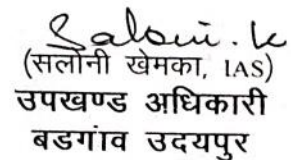 Saloni.k
(सलोनी खेमका, IAS)
उपखण्ड अधिकारी
बडगांव उदयपुर